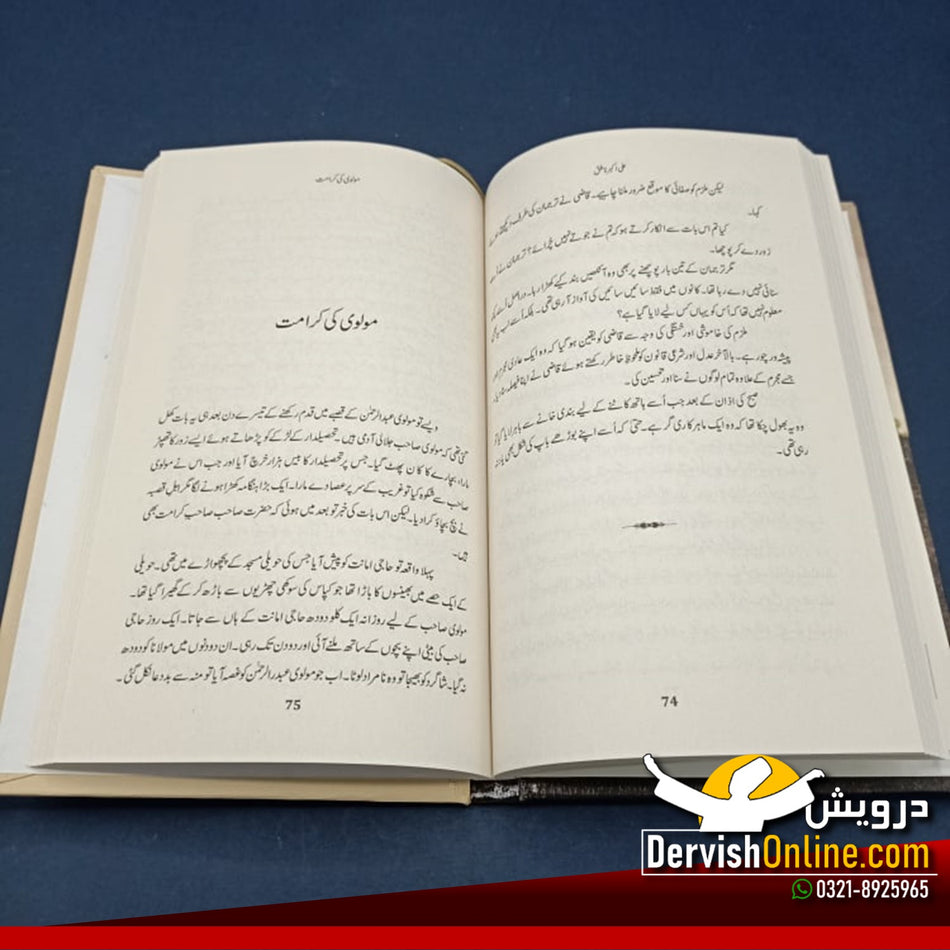 علی اکبر ناطق
لیکن ملزم کو صفائی کا موقع ضرور ملنا چاہیے۔ قاضی نے ترجمان کی طرف دیکھتے ہوئے
کہا۔
کیا تم اس بات سے انکار کرتے ہو کہ تم نے جوتے نہیں چرائے؟ ترجمان نے اُسے
زور دے کر پوچھا۔
مگر ترجمان کے تین بار پوچھنے پر بھی وہ آنکھیں بند کیے کھڑا رہا۔ دراصل اُسے کچھ
سنائی نہیں دے رہا تھا۔ کانوں میں فقط سائیں سائیں کی آواز آ رہی تھی۔ بلکہ اُسے اب یہ بھی
معلوم نہیں تھا کہ اُس کو یہاں کس لیے لایا گیا ہے؟
ملزم کی خاموشی اور خشکی کی وجہ سے قاضی کو یقین ہو گیا کہ وہ ایک عادی مجرم اور
پیشہ ور چور ہے۔ بالآخر عدل اور شرعی قانون کو ملحوظ خاطر رکھتے ہوئے قاضی نے اپنا فیصلہ سنا دیا،
جسے مجرم کے علاوہ تمام لوگوں نے سنا اور تحسین کی۔
صبح کی اذان کے بعد جب اُسے ہاتھ کاٹنے کے لیے بندی خانے سے باہر لایا گیا تو
وہ یہ بھول چکا تھا کہ وہ ایک ماہر کاری گر ہے۔ حتیٰ کہ اُسے اپنے بوڑھے باپ کی شکل بھی یاد نہ
رہی تھی۔
74
مولوی کی کرامت
مولوی کی کرامت
ویسے تو مولوی عبدالرحمٰن کے قصبے میں قدم رکھنے کے تیسرے دن بعد ہی یہ بات کھل
گئی تھی کہ مولوی صاحب جلالی آدمی ہیں۔ تحصیلدار کے لڑکے کو پڑھاتے ہوئے ایسے زور کا تھپڑ
مارا، بچارے کا کان پھٹ گیا۔ جس پر تحصیلدار کا بیس ہزار خرچ آیا اور جب اس نے مولوی
صاحب سے شکوہ کیا تو غریب کے سر پر عصا دے مارا۔ ایک بڑا ہنگامہ کھڑا ہونے لگا مگر اہلِ قصبہ
نے بیچ بچاؤ کرا دیا۔ لیکن اس بات کی خبر تو بعد میں ہوئی کہ حضرت صاحب صاحبِ کرامت بھی
ہیں۔
پہلا واقعہ تو حاجی امانت کو پیش آیا جس کی حویلی مسجد کے پچھواڑے میں تھی۔ حویلی
کے ایک حصے میں بھینسوں کا باڑا تھا جو کپاس کی سوکھی چھڑیوں سے باڑھ کر کے گھیرا گیا تھا۔
مولوی صاحب کے لیے روزانہ ایک کلو دودھ حاجی امانت کے ہاں سے جاتا۔ ایک روز حاجی
صاحب کی بیٹی اپنے بچوں کے ساتھ ملنے آئی اور دو دن تک رہی۔ ان دو دنوں میں مولانا کو دودھ
نہ گیا۔ شاگرد کو بھیجا تو وہ نامراد لوٹا۔ اب جو مولوی عبدالرحمٰن کو غصہ آیا تو منہ سے بددعا نکل گئی۔
75
درویش
DervishOnline.com
0321-8925965